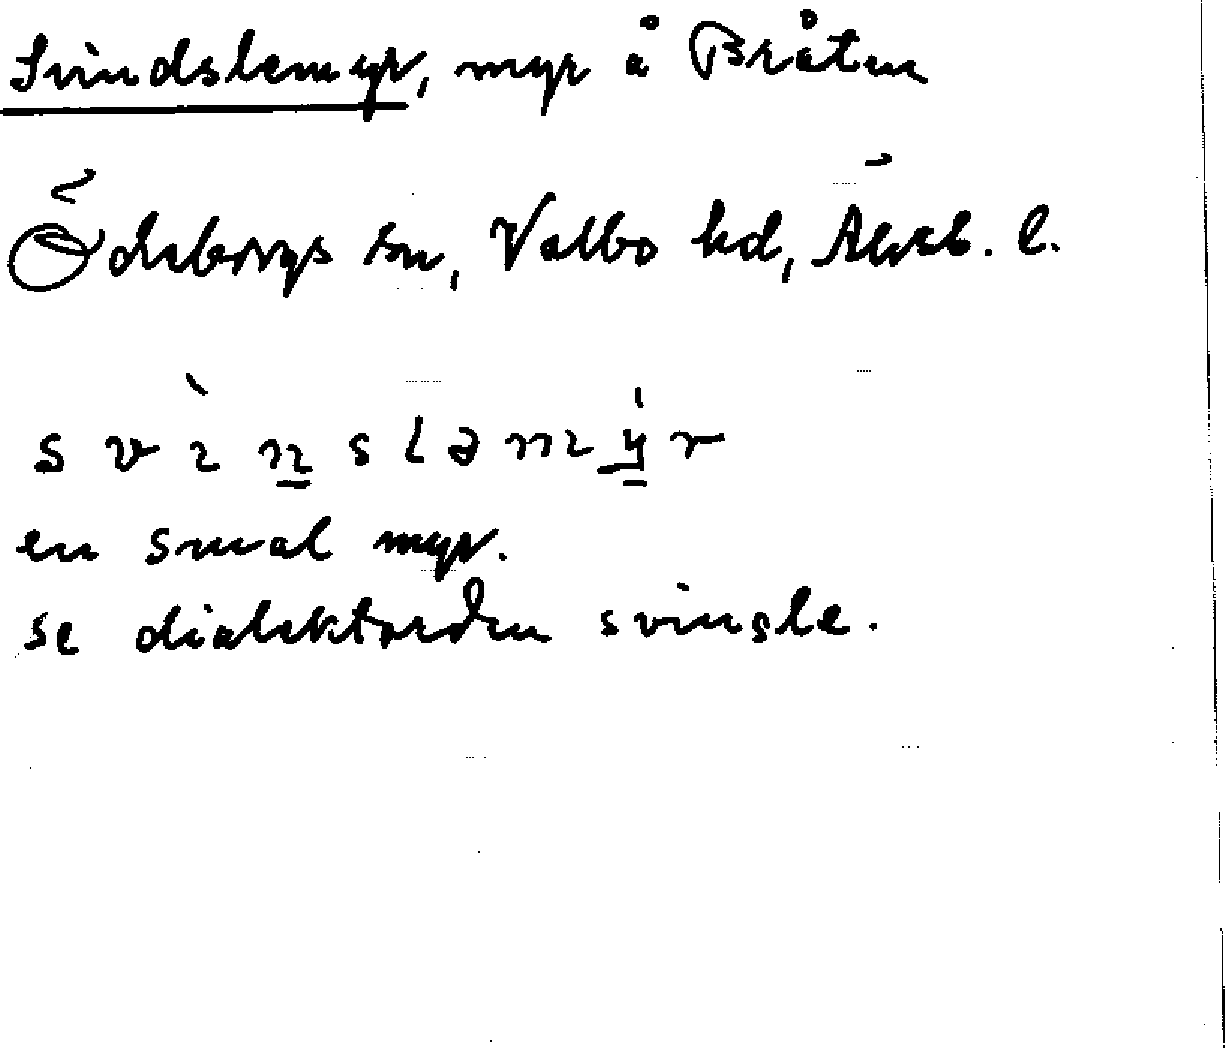 Svindslemyr, myr å Bråten
Ödeborgs sn, Valbo hd, Älvsb. l.
svinsləmyr
en smal myr.
se dialektorden svinsle.